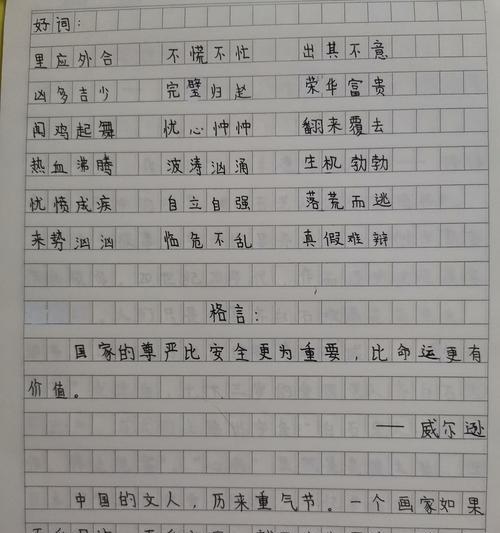 好词:
里应外合 不慌不忙 出其不意
凶多吉少 完璧归赵 荣华富贵
闻鸡起舞 忧心忡忡 翻来覆去
热血沸腾 波涛汹涌 生机勃勃
忧愤成疾 自立自强 落荒而逃
来势汹汹 临危不乱 真假难辩
格言:
国家的尊严比安全更为重要,比命运更有
价值。
——威尔逊
中国的文人,历来重气节。一个画家如果